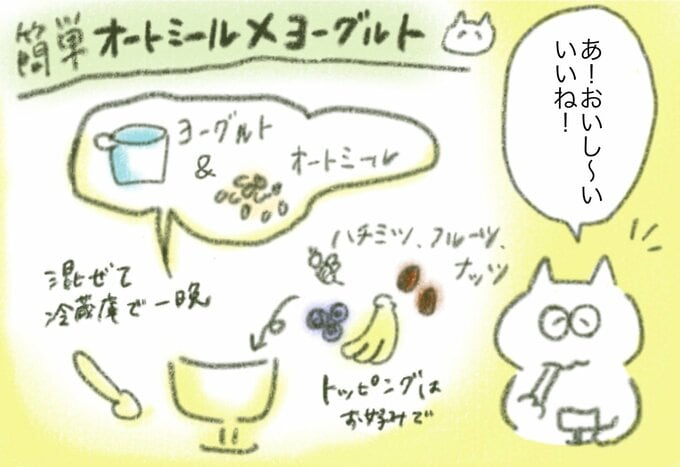 簡単オートミール×ヨーグルト
ヨーグルト
&
オートミール
混ぜて
冷蔵庫で一晩
ハチミツ、フルーツ、
ナッツ
トッピングは
お好みで
あ！おいし〜い
いいね！